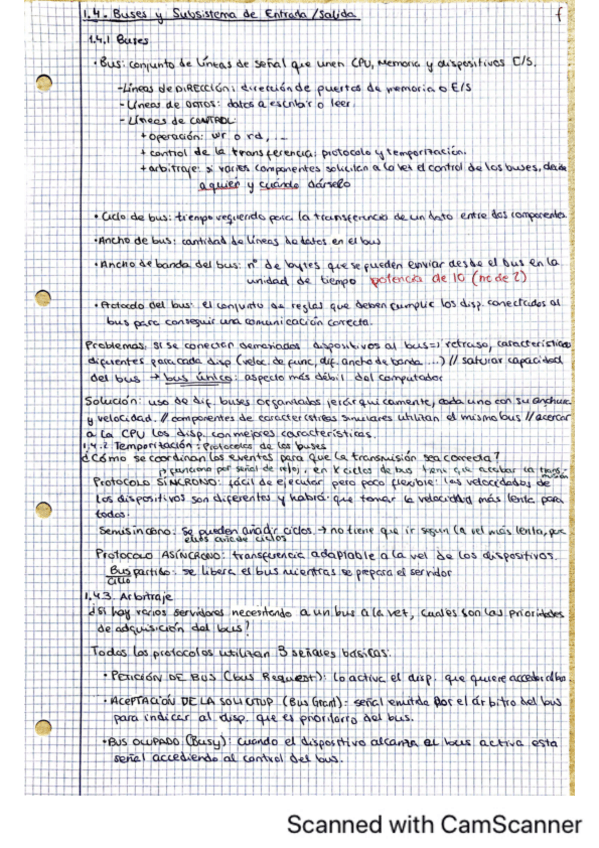 1.4. Buses y Subsistema de Entrada/Salida
1
1.4.1 Buses
• Bus: conjunto de líneas de señal que unen CPU, Memoria y dispositivos E/S.
- Líneas de DIRECCIÓN: dirección de puertos de memoria o E/S
- Líneas de DATOS: datos a escribir o leer.
- Líneas de CONTROL:
+ Operación: wr o rd, ...
+ control de la transferencia: protocolo y temporización.
+ arbitraje: si varios componentes solicitan a la vez el control de los buses, decide
a quién y cuándo dárselo
• Ciclo de bus: tiempo requerido para la transferencia de un dato entre dos componentes
• Ancho de bus: cantidad de líneas de datos en el bus
• Ancho de banda del bus: nº de bytes que se pueden enviar desde el bus en la
unidad de tiempo potencia de 10 (no de 2)
• Protocolo del bus: el conjunto de reglas que deben cumplir los disp. conectados al
bus para conseguir una comunicación correcta.
Problemas: si se conectan demasiados dispositivos al bus => retraso, características
diferentes para cada disp (veloc. de func, dif. ancho de banda ...) // saturar capacidad
del bus → bus único: aspecto más débil del computador
Solución: uso de dif. buses organizados jerárquicamente, cada uno con su anchura
y velocidad. // componentes de características similares utilizan el mismo bus // acercar
a la CPU los disp. con mejores características.
1.4.2 Temporización: Protocolos de los buses
¿Cómo se coordinan los eventos para que la transmisión sea correcta?
→ funciona por señal de reloj, en X ciclos de bus tiene que acabar la transmisión
Protocolo SÍNCRONO: fácil de ejecutar pero poco flexible: las velocidades de
los dispositivos son diferentes y habrá que tomar la velocidad más lenta para
todos.
Semisíncrono: se pueden añadir ciclos → no tiene que ir según la vel más lenta, por
ellos añade ciclos
Protocolo ASÍNCRONO: transferencia adaptable a la vel de los dispositivos.
Bus partido: se libera el bus mientras se prepara el servidor
Ciclo
1.4.3. Arbitraje
¿Si hay varios servidores necesitando a un bus a la vez, cuáles son las prioridades
de adquisición del bus?
Todos los protocolos utilizan 3 señales básicas:
• PETICIÓN DE BUS (bus Request): lo activa el disp. que quiere acceder al bus.
• ACEPTACIÓN DE LA SOLICITUD (Bus Grant): señal emitida por el árbitro del bus
para indicar al disp. que es prioritario del bus.
• BUS OCUPADO (Busy): cuando el dispositivo alcanza el bus activa esta
señal accediendo al control del bus.
Scanned with CamScanner